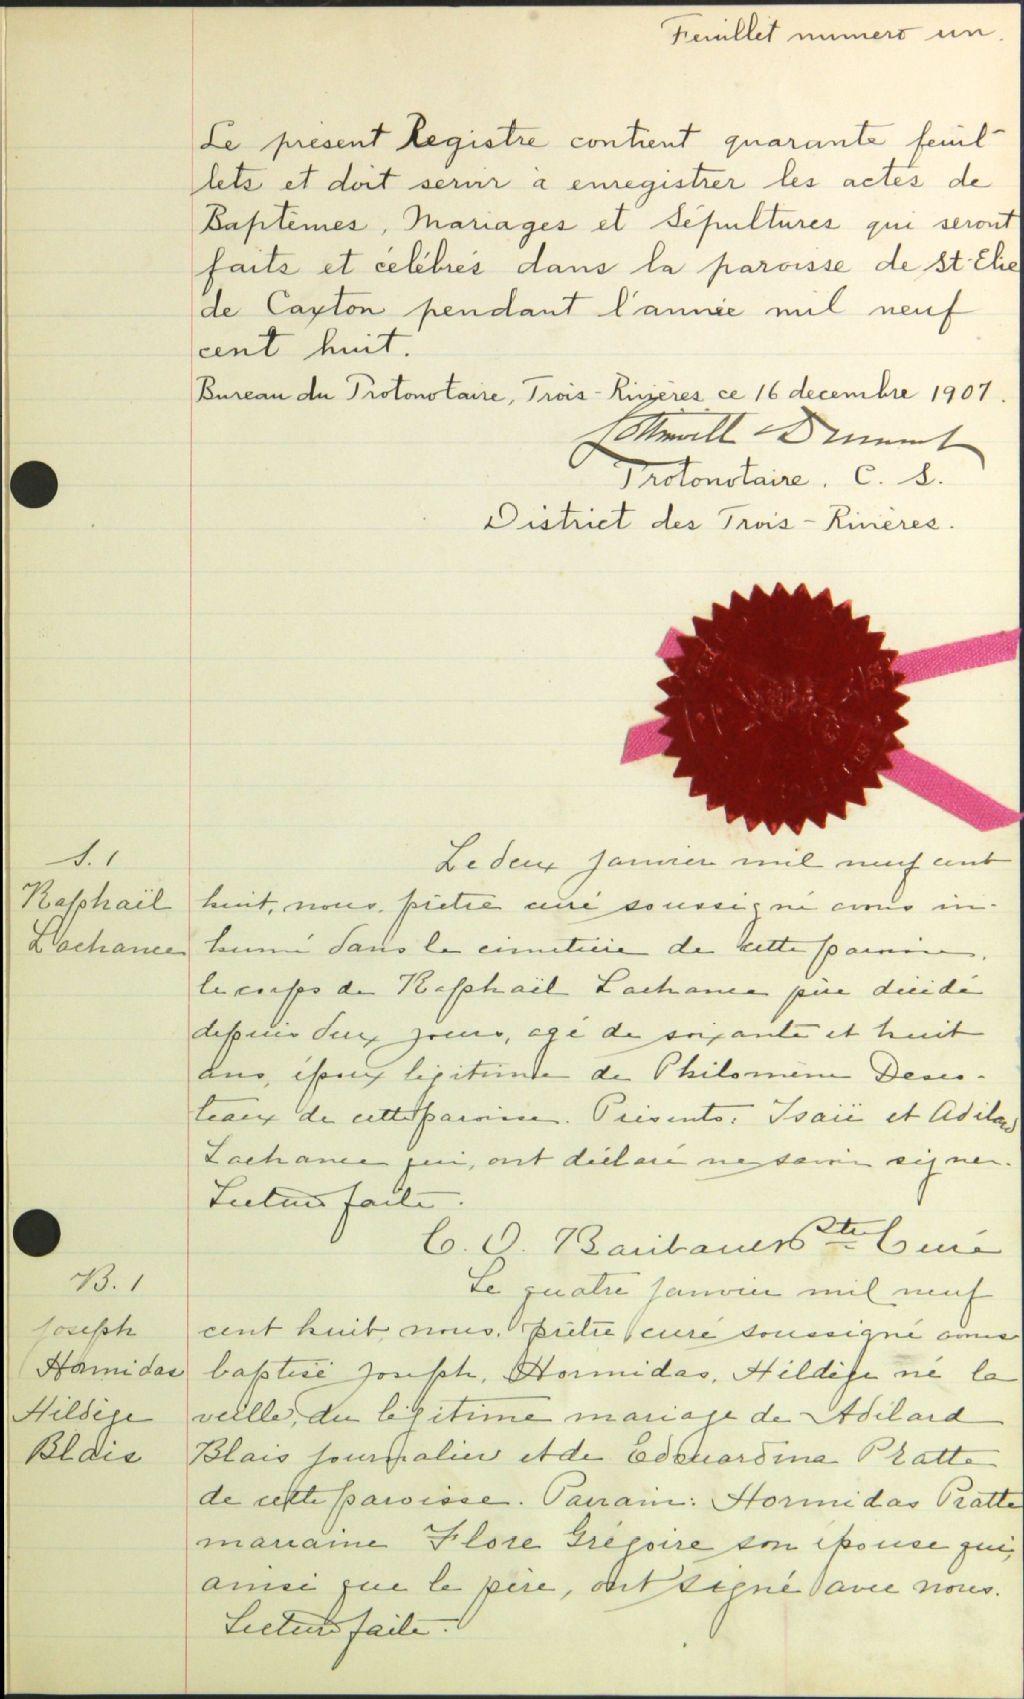 Feuillet numero un.
Le présent Registre contient quarante feuil-
lets et doit servir à enregistrer les actes de
Baptêmes, Mariages et Sépultures qui seront
faits et célébrés dans la paroisse de St-Elie
de Caxton pendant l'année mil neuf
cent huit.
Bureau du Protonotaire, Trois-Rivières ce 16 decembre 1907.
Protonotaire. C. S.
District des Trois-Rivières.
S. 1
Raphaël
Lachance
Le deux janvier mil neuf cent
huit, nous, prêtre curé soussigné avons in-
humé dans le cimetière de cette paroisse,
le corps de Raphaël Lachance père décédé
depuis deux jours, agé de soixante et huit
ans, époux légitime de Philomène Desco-
teaux de cette paroisse. Présents: Isaïe et Adilard
Lachance qui, ont déclaré ne savoir signer.
Lecture faite.
C. O. Baribeau Ptre Curé
B. 1
Joseph
Hormidas
Hildège
Blais
Le quatre janvier mil neuf
cent huit, nous, prêtre curé soussigné avons
baptisé Joseph, Hormidas, Hildège né la
veille, du légitime mariage de Adilard
Blais journalier et de Edouardina Pratte
de cette paroisse. Parrain: Hormidas Pratte
marraine Flore Grégoire son épouse qui,
ainsi que le père, ont signé avec nous.
Lecture faite.